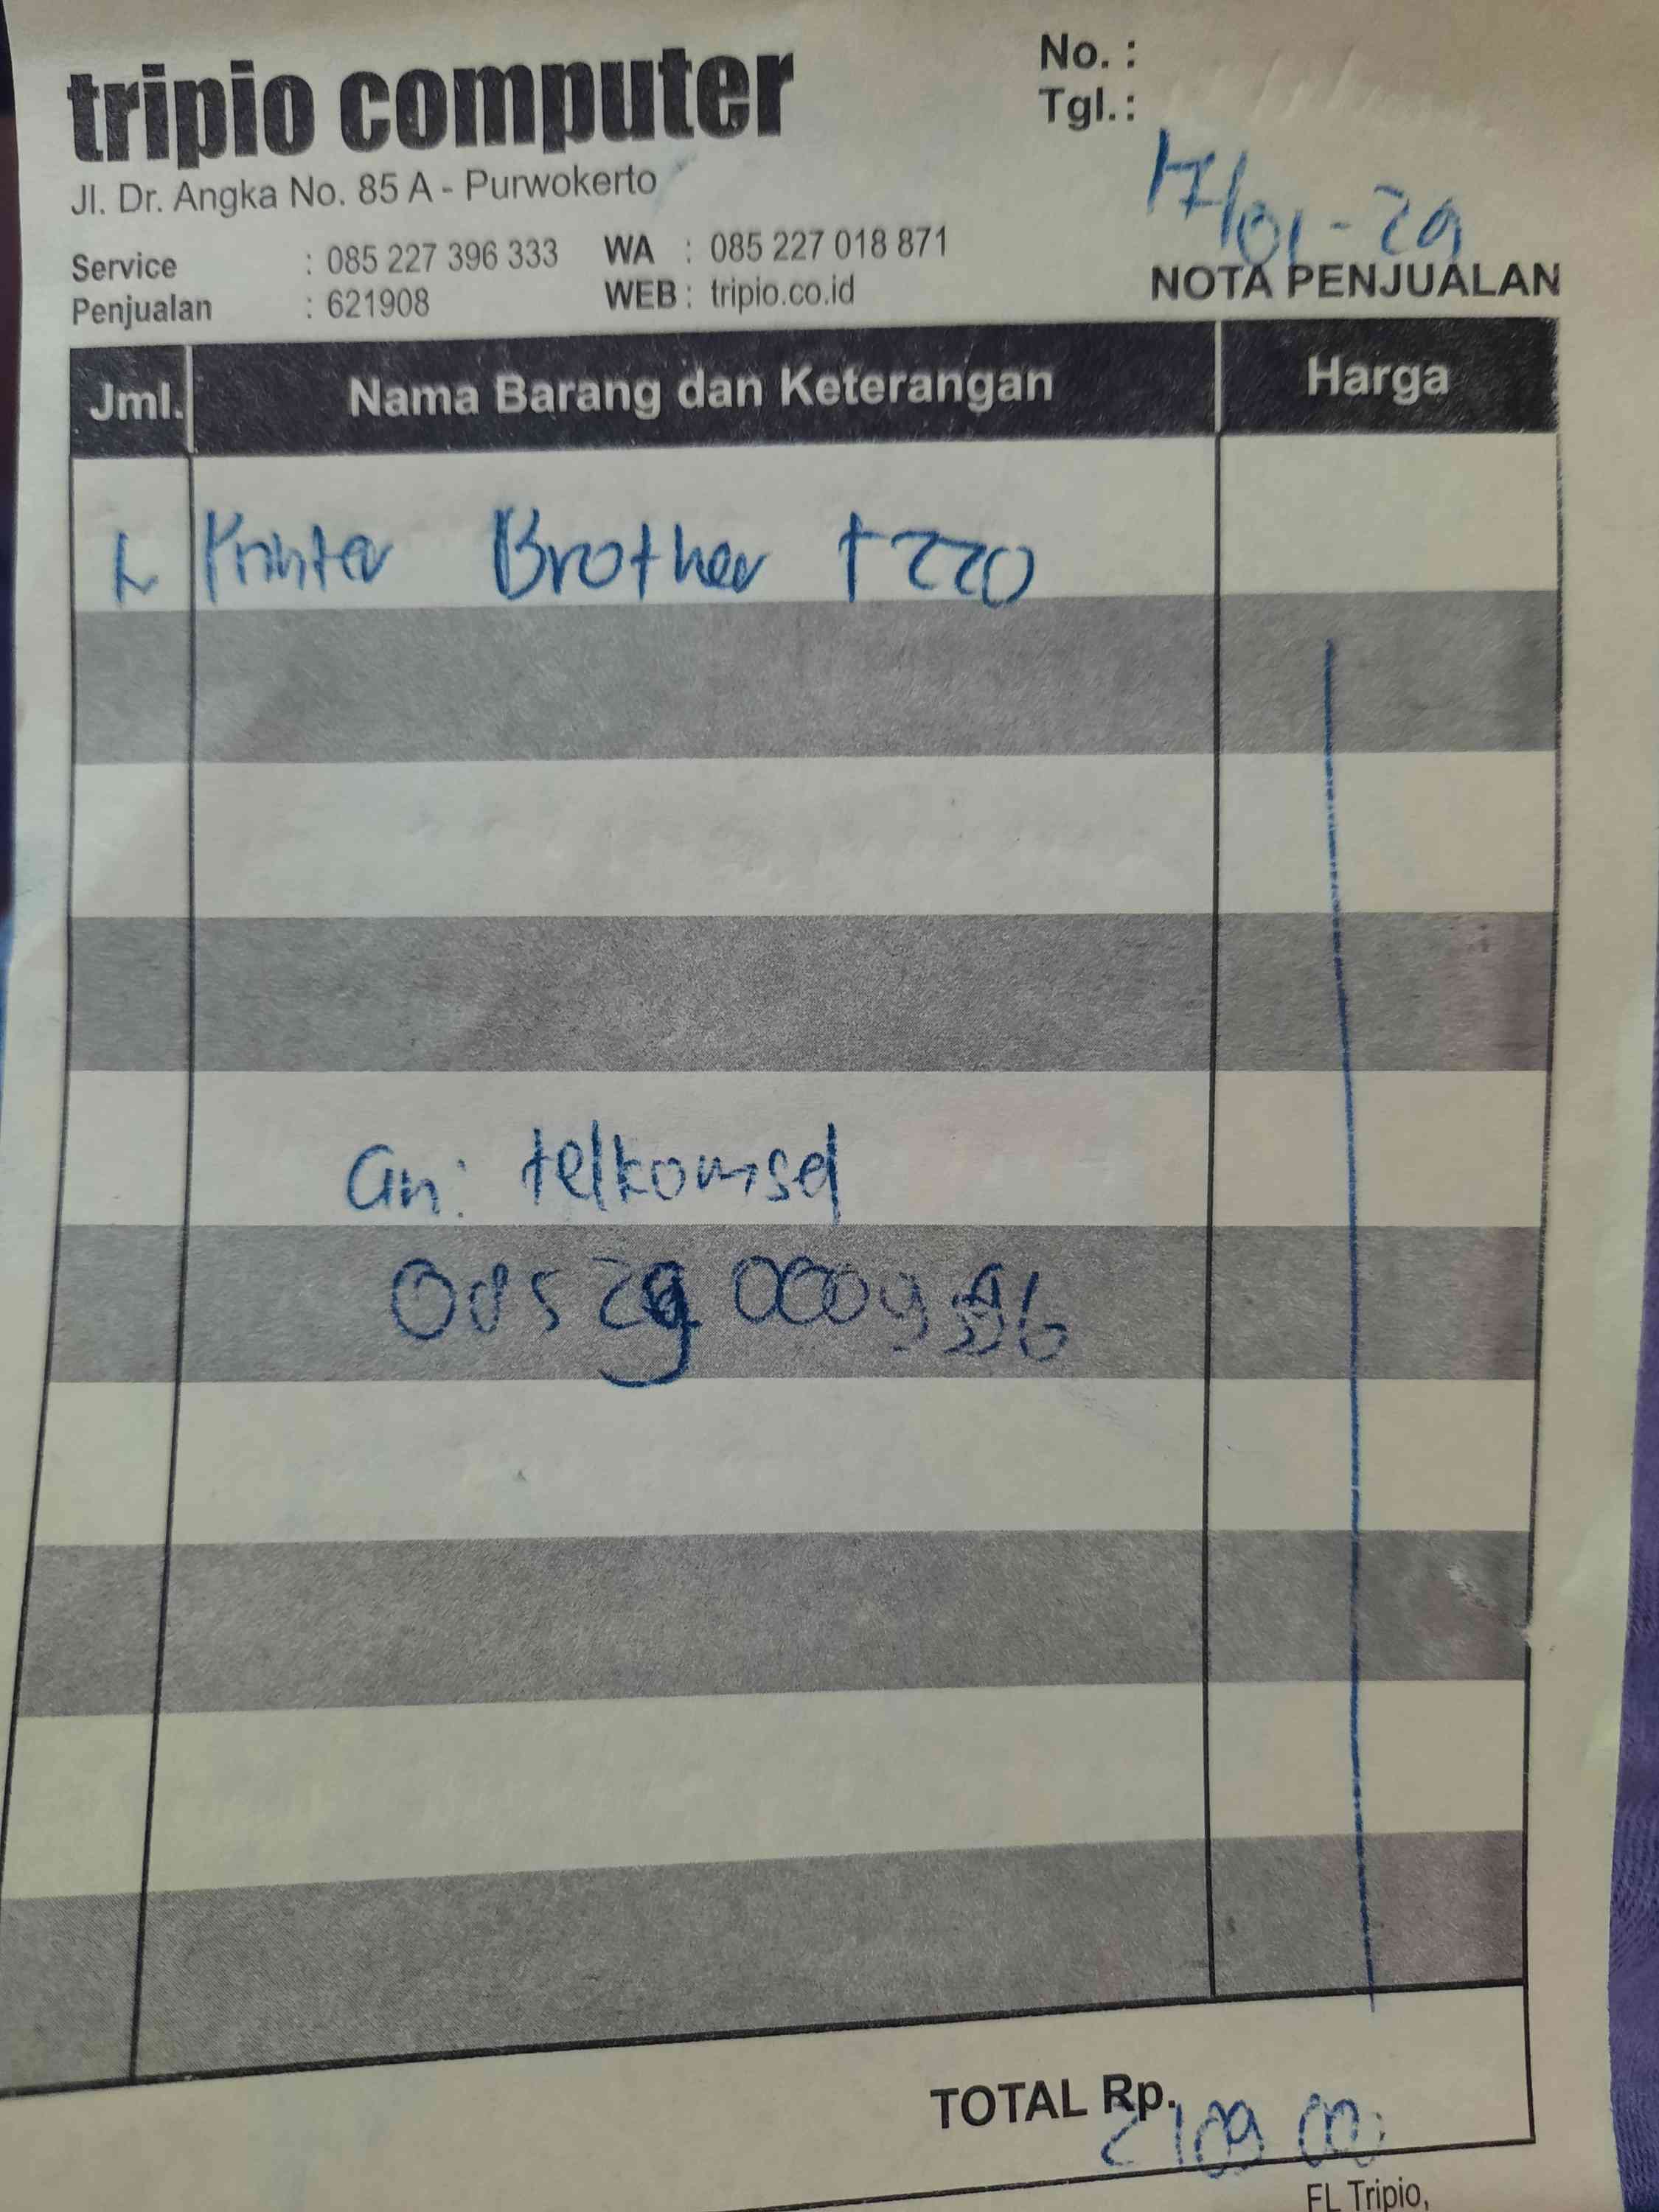 tripio computer
No. :
Tgl. :
17/01-29
Jl. Dr. Angka No. 85 A - Purwokerto
Service : 085 227 396 333 WA : 085 227 018 871
Penjualan : 621908 WEB : tripio.co.id
NOTA PENJUALAN
Jml. Nama Barang dan Keterangan Harga
Printer Brother t220
an: telkomsel
TOTAL Rp.
FL Tripio,